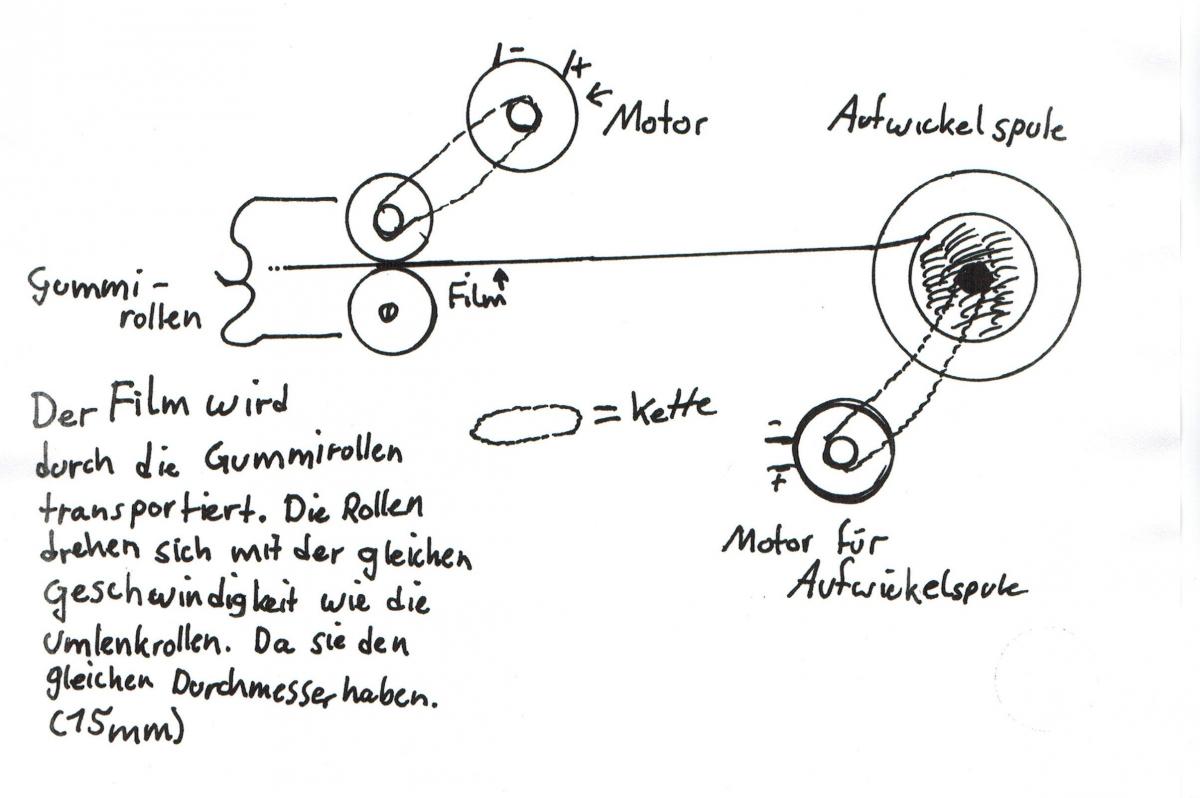 -
+
Motor
Aufwickelspule
Gummi-
rollen
Film
Der Film wird
durch die Gummirollen
transportiert. Die Rollen
drehen sich mit der gleichen
Geschwindigkeit wie die
Umlenkrollen. Da sie den
gleichen Durchmesser haben.
(15mm)
= Kette
-
+
Motor für
Aufwickelspule